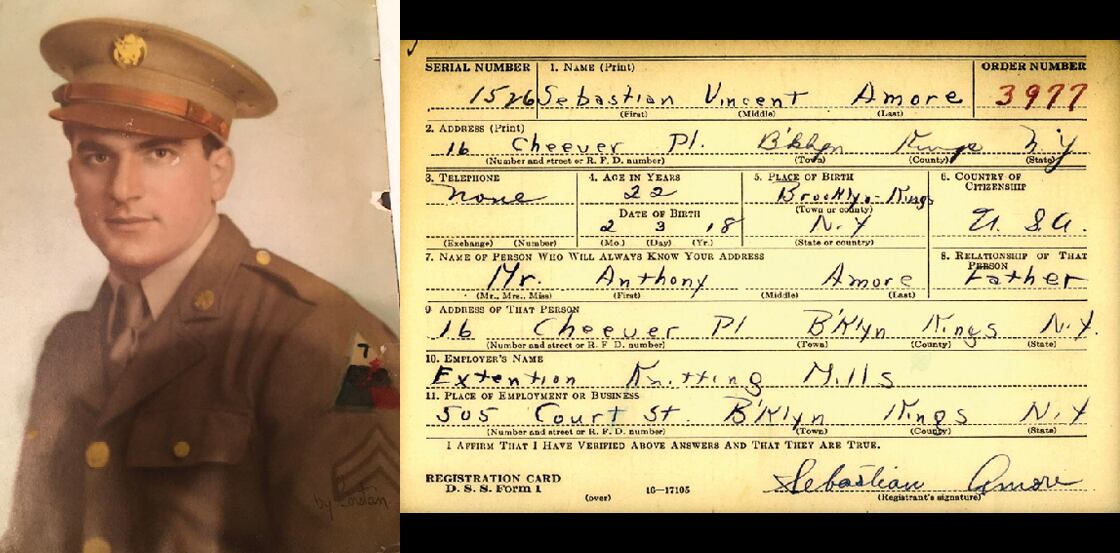 7
by Lordan
SERIAL NUMBER 1. NAME (Print) ORDER NUMBER
1526 Sebastian Vincent Amore 3977
(First) (Middle) (Last)
2. ADDRESS (Print)
16 Cheever Pl. B'klyn Kings N.Y
(Number and street or R. F. D. number) (Town) (County) (State)
3. TELEPHONE 4. AGE IN YEARS 5. PLACE OF BIRTH 6. COUNTRY OF CITIZENSHIP
none 22 Brooklyn-Kings
DATE OF BIRTH (Town or county)
2 3 18 N.Y U.S.A.
(Exchange) (Number) (Mo.) (Day) (Yr.) (State or country)
7. NAME OF PERSON WHO WILL ALWAYS KNOW YOUR ADDRESS 8. RELATIONSHIP OF THAT PERSON
Mr. Anthony Amore Father
(Mr., Mrs., Miss) (First) (Middle) (Last)
9 ADDRESS OF THAT PERSON
16 Cheever Pl B'Klyn Kings N.Y.
(Number and street or R. F. D. number) (Town) (County) (State)
10. EMPLOYER'S NAME
Extention Knitting Mills
11. PLACE OF EMPLOYMENT OR BUSINESS
505 Court St. B'Klyn Kings N.Y
(Number and street or R. F. D. number) (Town) (County) (State)
I AFFIRM THAT I HAVE VERIFIED ABOVE ANSWERS AND THAT THEY ARE TRUE.
Sebastian Amore
REGISTRATION CARD
D. S. S. Form 1 (over) 16—17105 (Registrant's signature)